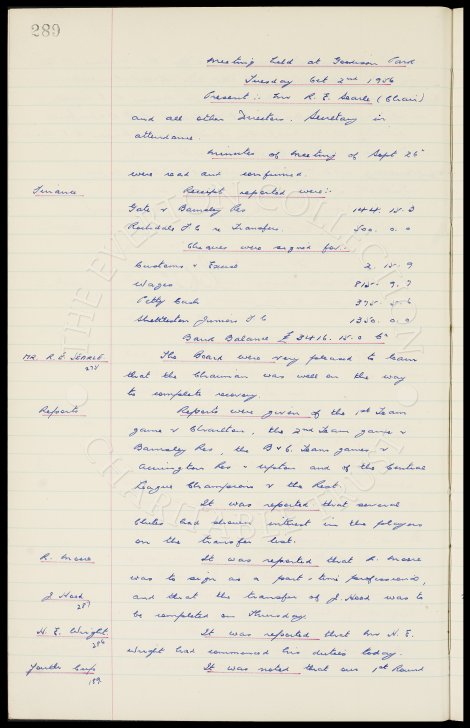 289
Meeting held at Goodison Park
Tuesday Oct 2nd 1956
Present :- Mr R. E. Searle (Chair)
and all other Directors. Secretary in
attendance.
Minutes of Meeting of Sept 25th
were read and confirmed.
Finance Receipts reported were :-
Gate v Barnsley Res 144. 18. 3
Rochdale F C re Transfers 500. 0. 0
Cheques were signed for :-
Customs & Excise 2. 15. 9
Wages 815. 9. 7
Petty Cash 375. 5. 6
Shettleston Juniors F C 1350. 0. 0
Bank Balance £ 3416. 15. 0
MR. R. E. SEARLE. The Board were very pleased to learn
that the Chairman was well on the way
to complete recovery.
Reports Reports were given of the 1st Team
game v Charlton, the 2nd Team game v
Barnsley Res, the B & C. Team games v
Accrington Res & Upton and of the Central
League Champions v the Rest.
It was reported that several
Clubs had shown interest in the players
on the transfer list.
R. Moore It was reported that R. Moore
was to sign as a part-time professional,
J. Hood and that the transfer of J. Hood was to
287 be completed on Thursday.
H. E. Wright. It was reported that Mr H. E.
Wright had commenced his duties today.
Youths Cup It was noted that our 1st Round
THE EVERTON COLLECTION
CHARITABLE TRUST